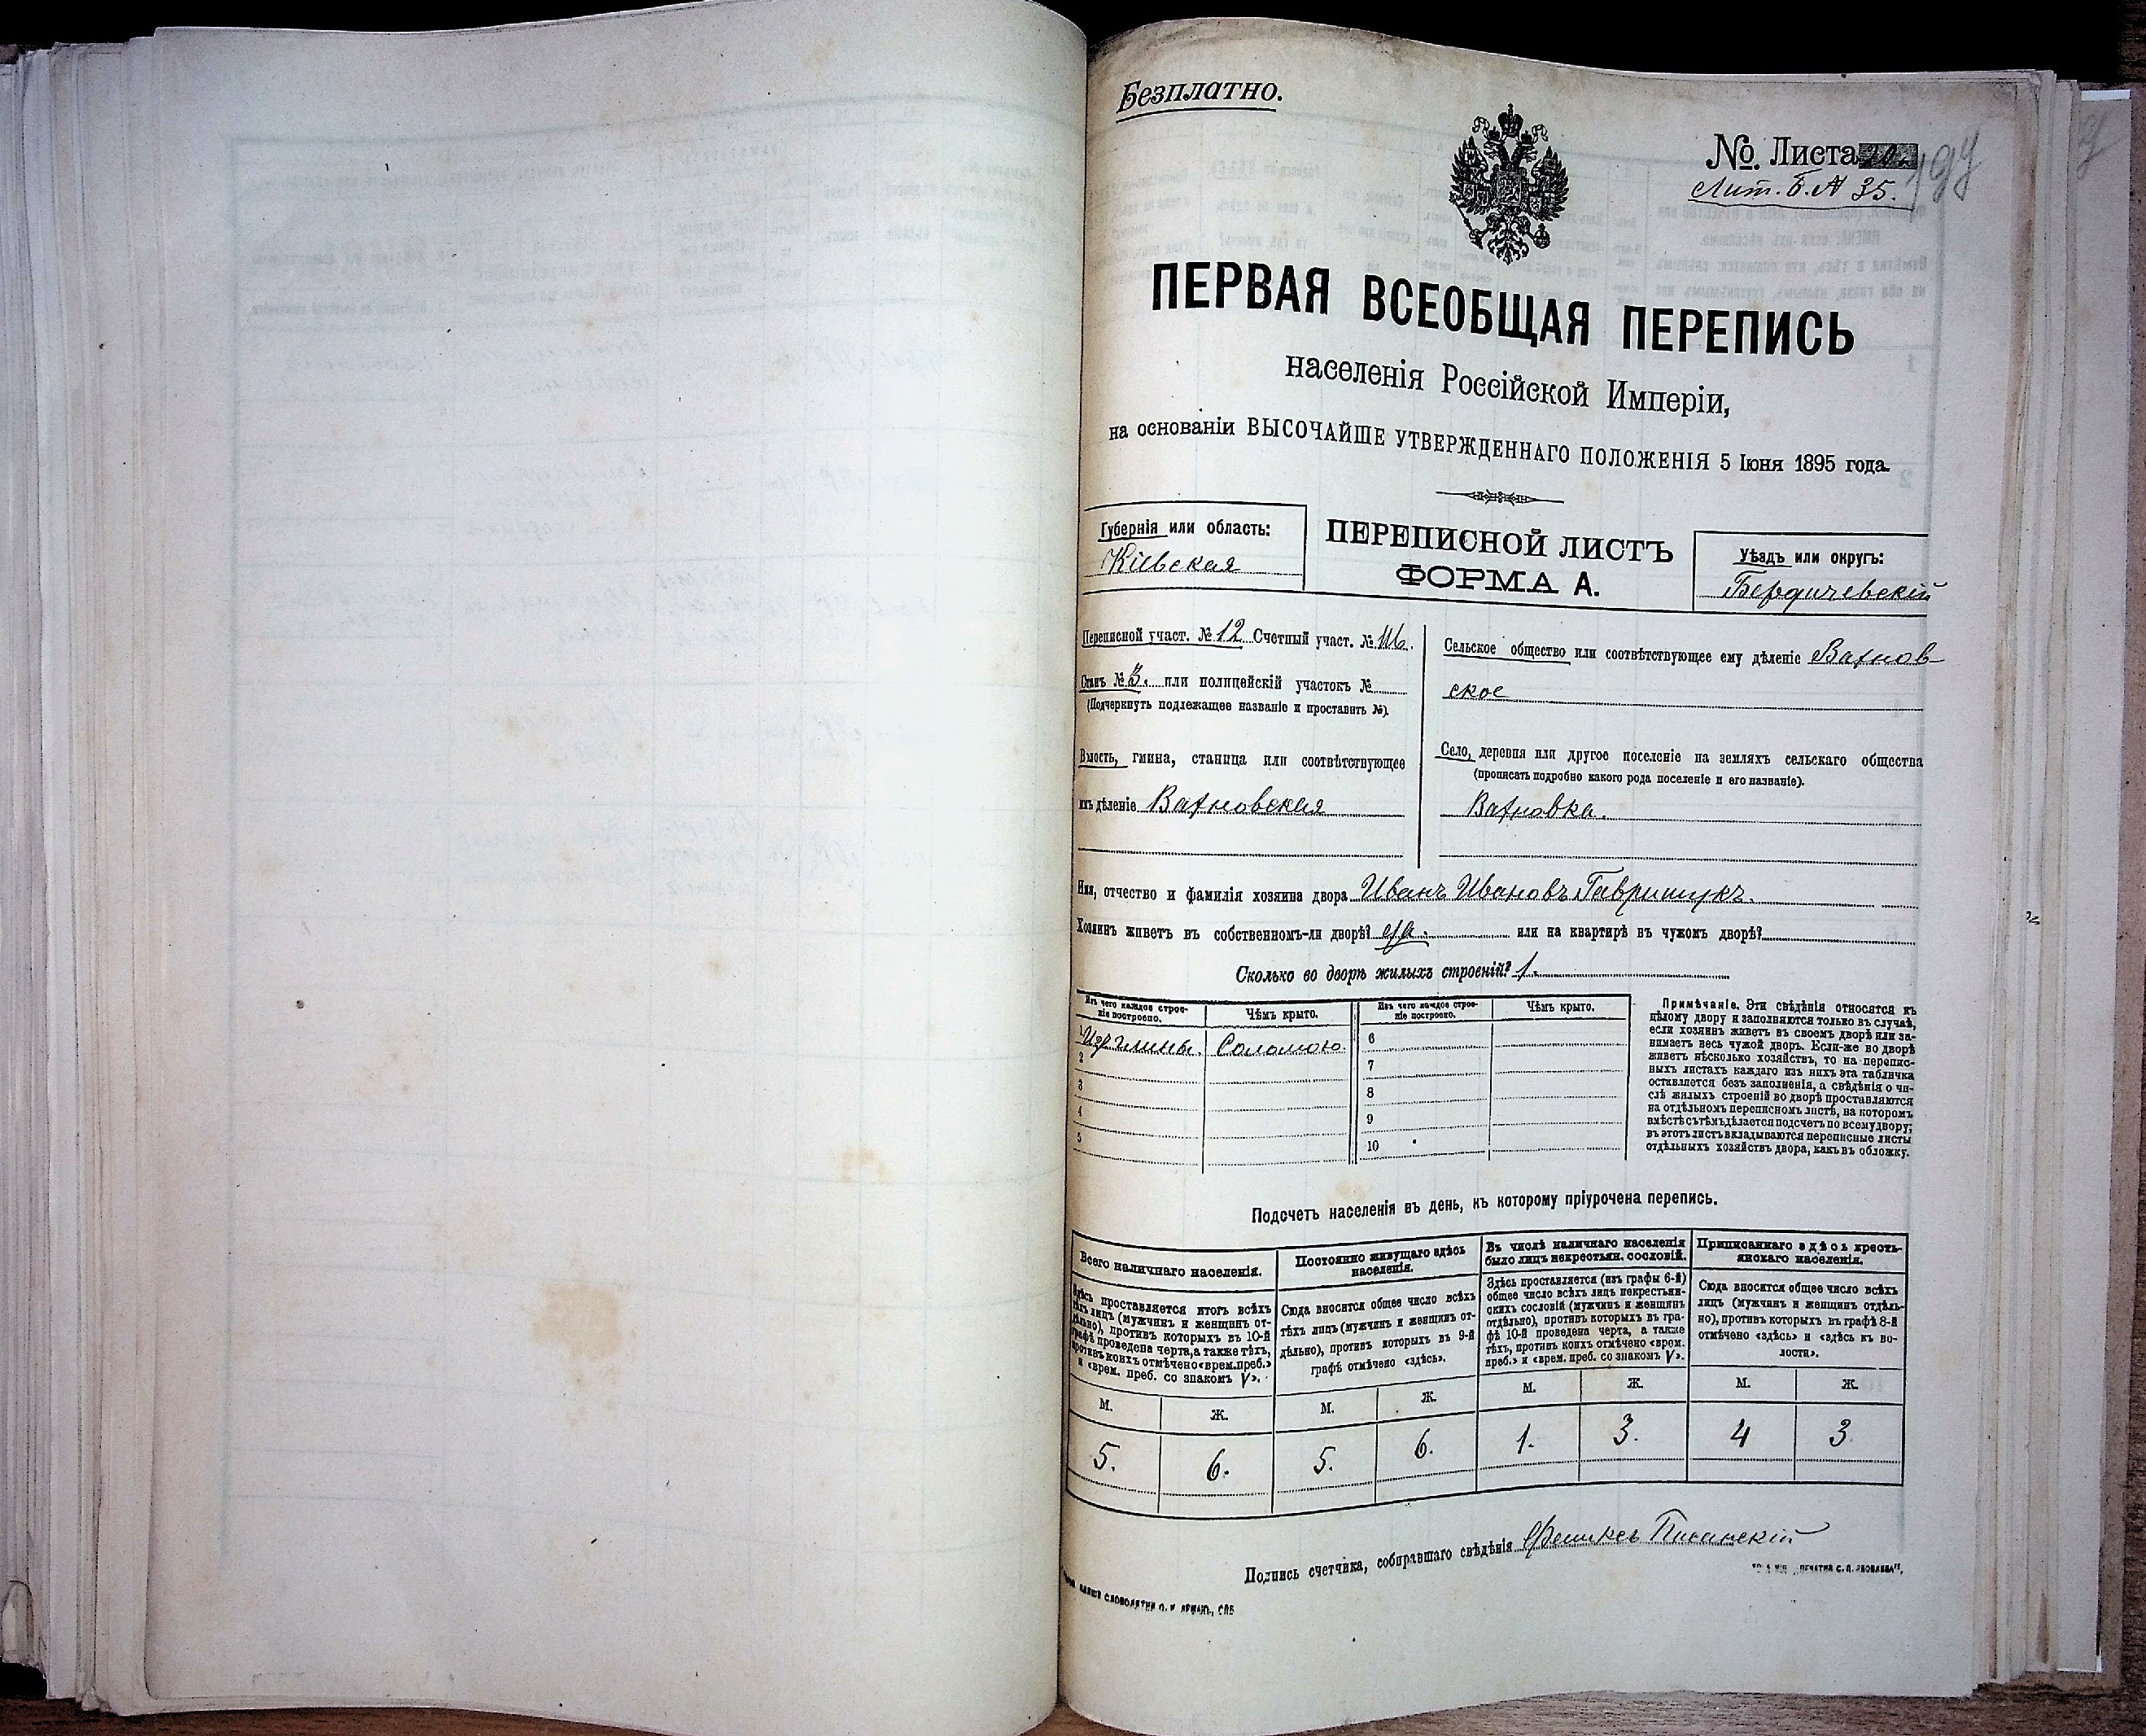 Безплатно.
№ Листа 20а 197
Лит. Б. № 35.
ПЕРВАЯ ВСЕОБЩАЯ ПЕРЕПИСЬ
населенія Россійской Имперіи,
на основаніи ВЫСОЧАЙШЕ УТВЕРЖДЕННАГО ПОЛОЖЕНІЯ 5 Іюня 1895 года.
Губернія или область:
Кіевская
ПЕРЕПИСНОЙ ЛИСТЪ
ФОРМА А.
Уѣздъ или округъ:
Бердичевскій
Переписной участ. № 12 Счетный участ. №
Станъ № 3. или полицейскій участокъ №
(Подчеркнуть подлежащее названіе и проставить №).
Волость, гмина, станица или соотвѣтствующее
имъ дѣленіе Вахновская
Сельское общество или соотвѣтствующее ему дѣленіе Вахнов-
ское
Село, деревня или другое поселеніе на земляхъ сельскаго общества
(прописать подробно какого рода поселеніе и его названіе).
Вахновка.
Имя, отчество и фамилія хозяина двора Иванъ Ивановъ Гаврищукъ.
Хозяинъ живетъ въ собственномъ-ли дворѣ? да. или на квартирѣ въ чужомъ дворѣ?
Сколько во дворѣ жилыхъ строеній? 1.
Изъ чего каждое строе-
ніе построено.
Чѣмъ крыто.
Изъ чего каждое строе-
ніе построено.
Чѣмъ крыто.
1 Изъ глины. Соломою. 6
2 7
3 8
4 9
5 10
Примѣчаніе. Эти свѣдѣнія относятся къ
цѣлому двору и заполняются только въ случаѣ,
если хозяинъ живетъ въ своемъ дворѣ или за-
нимаетъ весь чужой дворъ. Если-же во дворѣ
живетъ нѣсколько хозяйствъ, то на перепис-
ныхъ листахъ каждаго изъ нихъ эта табличка
оставляется безъ заполненія, а свѣдѣнія о чи-
слѣ жилыхъ строеній во дворѣ проставляются
на отдѣльномъ переписномъ листѣ, на которомъ
вмѣстѣ съ тѣмъ дѣлается подсчетъ по всему двору;
въ этотъ листъ вкладываются переписные листы
отдѣльныхъ хозяйствъ двора, какъ въ обложку.
Подсчетъ населенія въ день, къ которому пріурочена перепись.
Всего наличнаго населенія.
Здѣсь проставляется итогъ всѣхъ
тѣхъ лицъ (мужчинъ и женщинъ от-
дѣльно), противъ которыхъ въ 10-й
графѣ проведена черта, а также тѣхъ,
противъ коихъ отмѣчено «врем. преб.»
и «врем. преб. со знакомъ V».
Постоянно живущаго здѣсь
населенія.
Сюда вносится общее число всѣхъ
тѣхъ лицъ (мужчинъ и женщинъ от-
дѣльно), противъ которыхъ въ 9-й
графѣ отмѣчено «здѣсь».
Въ числѣ наличнаго населенія
было лицъ некрестьян. сословій.
Здѣсь проставляется (изъ графы 6-й)
общее число всѣхъ лицъ некрестьян-
скихъ сословій (мужчинъ и женщинъ
отдѣльно), противъ которыхъ въ гра-
фѣ 10-й проведена черта, а также
тѣхъ, противъ коихъ отмѣчено «врем.
преб.» и «врем. преб. со знакомъ V».
Приписаннаго здѣсь кресть-
янскаго населенія.
Сюда вносится общее число всѣхъ
лицъ (мужчинъ и женщинъ отдѣль-
но), противъ которыхъ въ графѣ 8-й
отмѣчено «здѣсь» и «здѣсь въ во-
лости».
М. Ж. М. Ж. М. Ж. М. Ж.
5. 6. 5. 6. 1. 3. 4 3
Подпись счетчика, собиравшаго свѣдѣнія Феликсъ